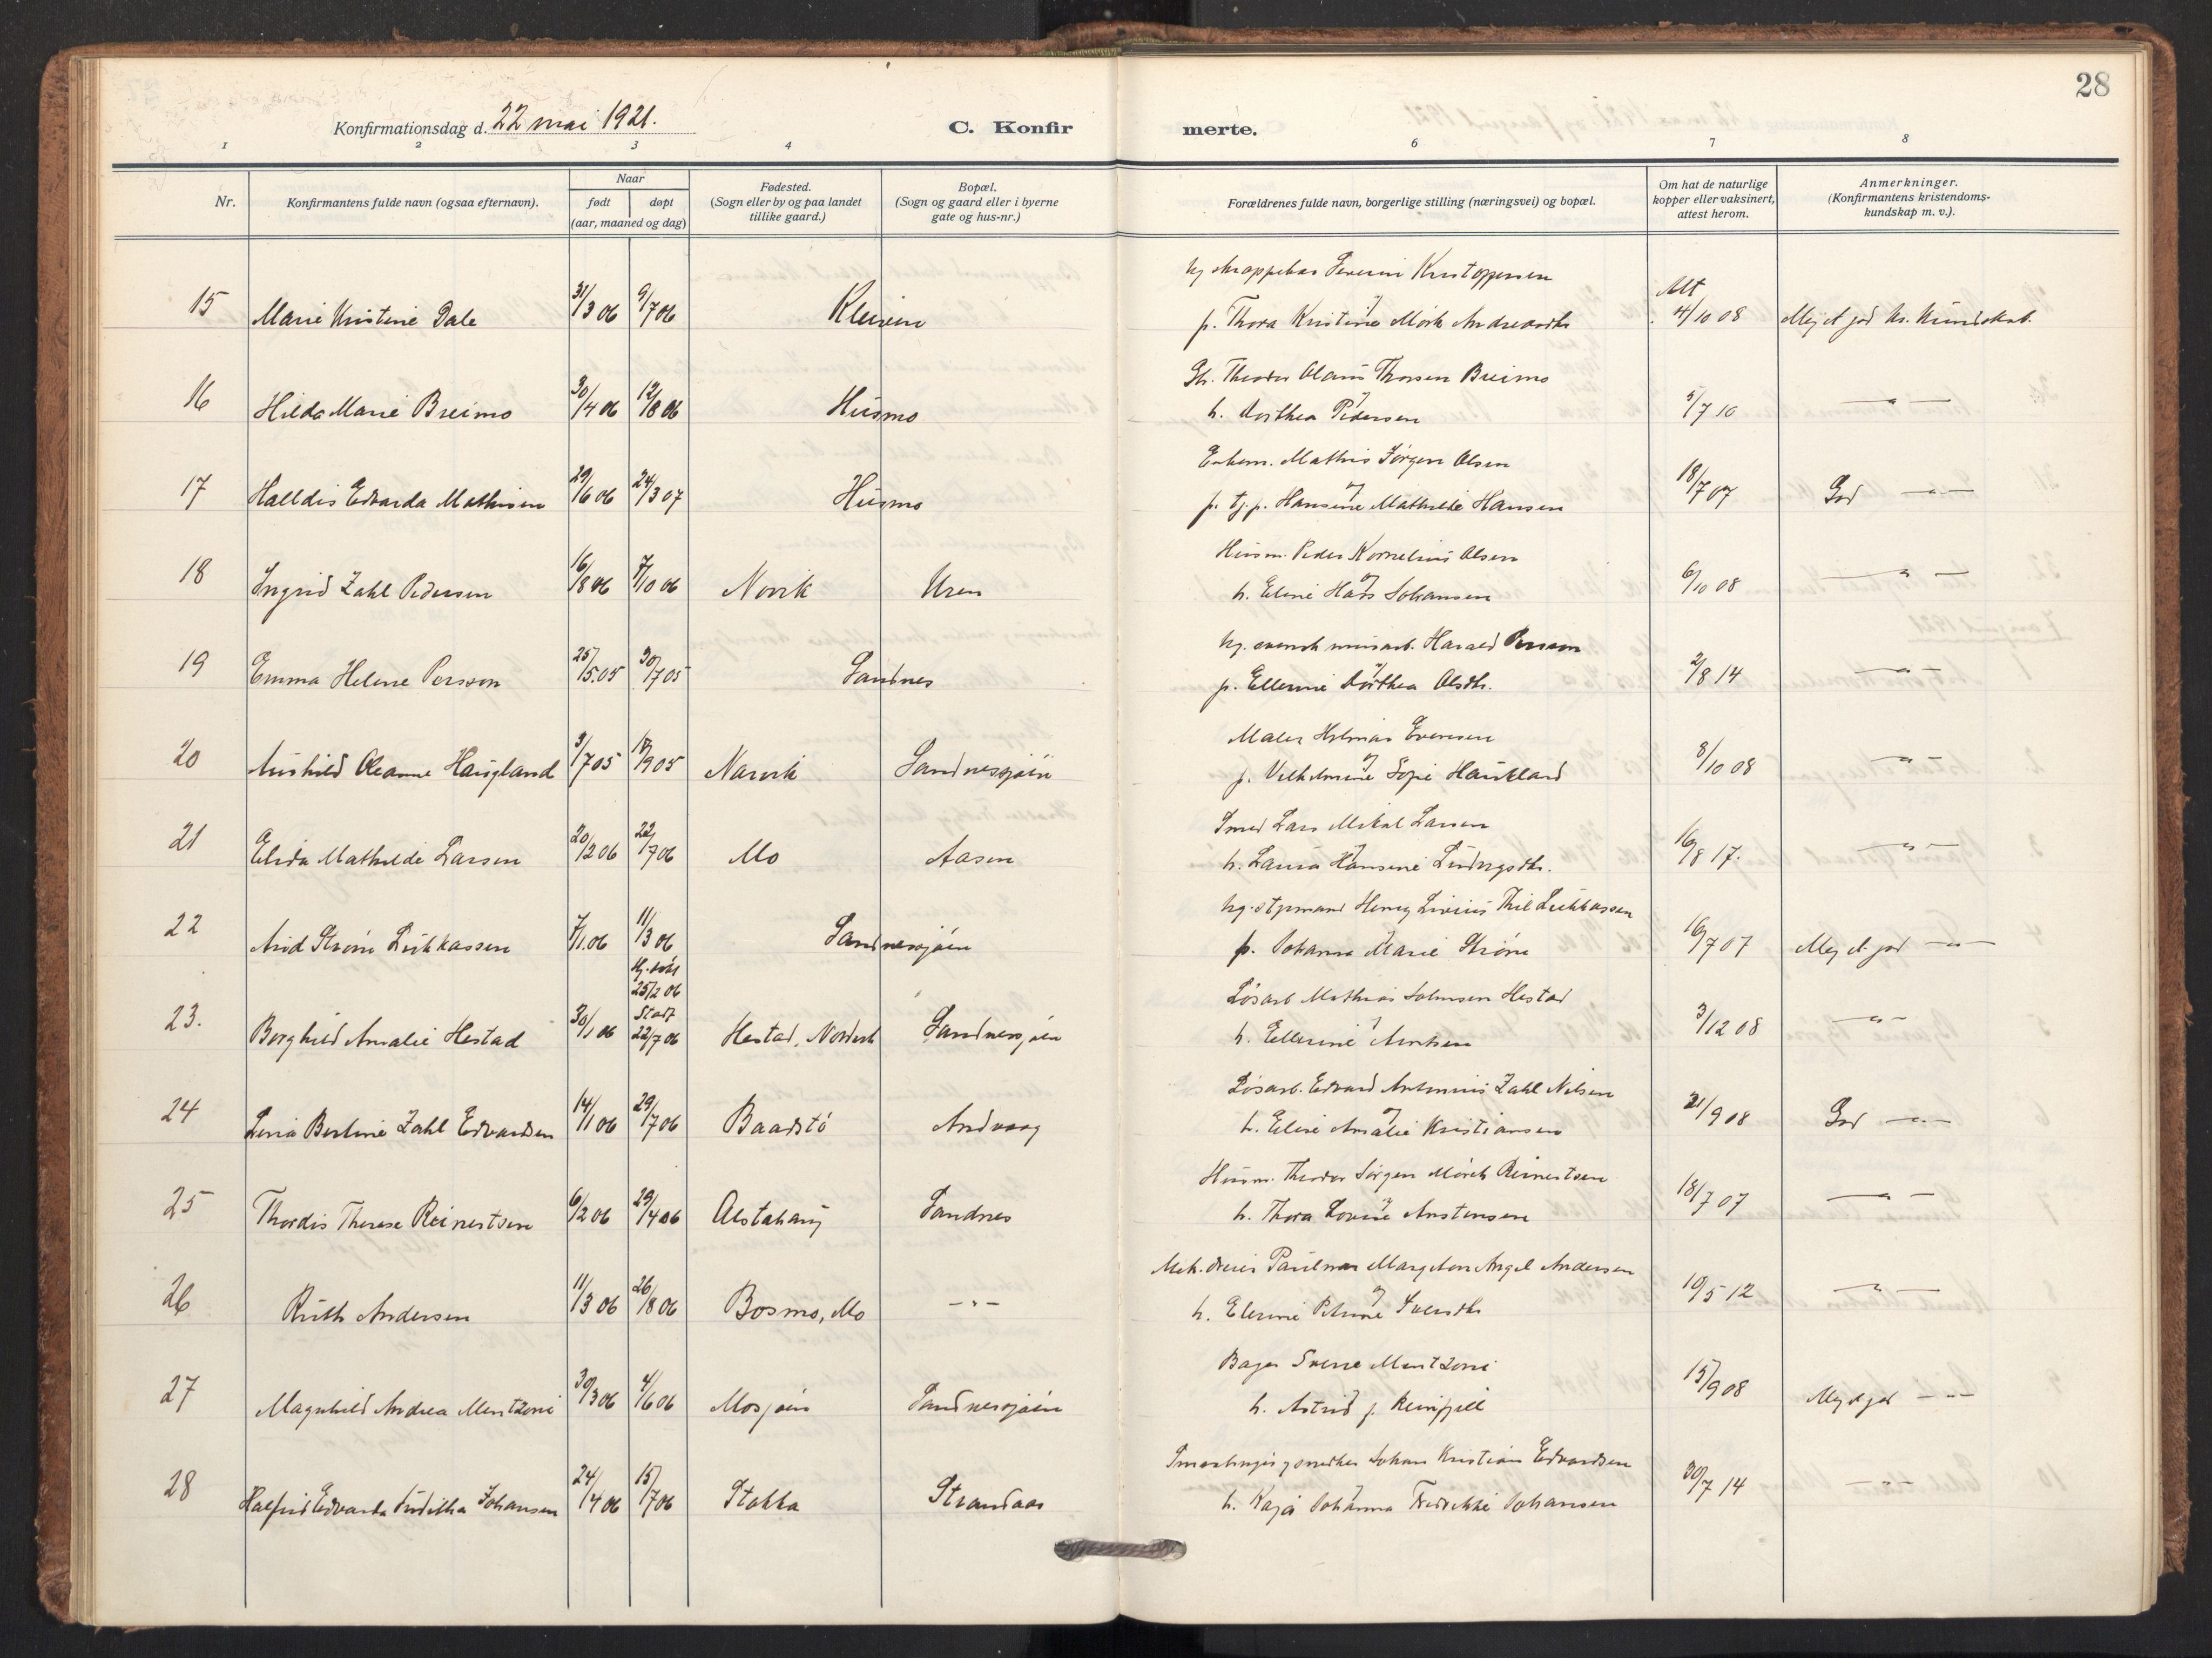 28
Konfirmationsdag d. 22 mai 1921.
C. Konfir merte.
1 2 3 4 6 7 8
Nr.
Konfirmantens fulde navn (ogsaa efternavn).
Naar
født døpt
(aar, maaned og dag)
Fødested.
(Sogn eller by og paa landet
tillike gaard.)
Bopæl.
(Sogn og gaard eller i byerne
gate og hus-nr.)
Forældrenes fulde navn, borgerlige stilling (næringsvei) og bopæl.
Om hat de naturlige
kopper eller vaksinert,
attest herom.
Anmerkninger.
(Konfirmantens kristendoms-
kundskap m. v.).
Kristoffersen
15 Marie Kristine Dale 31/3 06 9/7 06 Kleiven p. Thora Kristine Mörk Att 4/10 08 Meget god kr. kundskab.
Theodor Olaus Thorsen Breimo
16 Hilda Marie Breimo 30/4 06 12/8 06 Husmo h. Dorthea Pedersen 5/7 10 — " —
Mathis Jörgen Olsen
17 Halldis Edvarda Mathisen 29/6 06 24/3 07 Husmo p. tj. p. Hansine Mathilde Hansen 18/7 07 God — " —
Husm. Peder Kornelius Olsen
18 Ingrid Zahl Pedersen 16/8 06 7/10 06 Novik Uren h. Eline Johansen 6/10 08 — " —
Harald Persson
19 Emma Helene Persson 25/5.05 30/7 05 Sandnes p. Ellerine Dorthea Olsdtr. 2/8 14 — " —
Maler Hilmar Evensen
20 Aushild Oleanne Haugland 3/7 05 /9 05 Narvik Sandnessjöen p. Vilhelmine Sofie Haukland 8/10 08 — " —
Smed Lars Mikal Larsen
21 Elida Mathilde Larsen 20/2 06 22/7 06 Mo Aasen h. Laura Hansine Ludvigsdtr. 16/8 17.  — " —
ug. styrmand Henry Livius Thil Lukkassen
22 Arvid Ström Lukkassen 7/1.06 11/3 06 Sandnessjöen p. Johanna Marie Ström 16/7 07 Meget god — " —
Hj. döbt
25/2 06
Stadf
Lösarb Mathias Johnsen Hestad
23. Borghild Amalie Hestad 30/1 06 22/7 06 Hestad, Nordvik Sandnessjöen h. Ellerine Arntsen 3/12 08 — " —
Lösarb. Edvard Antonius Zahl Nilsen
24 Lina Berline Zahl Edvardsen 14/1 06 29/7 06 Baadstö Andvaag h. Elise Amalie Kristiansen 21/9 08 God — " —
Husm. Theodor Jörgen Mörch Reinertsen
25 Thordis Therese Reinertsen 6/2 06 29/4 06 Alstahaug Sandnes h. Thora Lovise Anstensen 18/7 07 — " —
Mek. Andersen
26 Ruth Andersen 11/3 06 26/8 06 Bosmo, Mo — " — h. Elerine Petrine 10/5 12 — " —
Bager Sverre Mentzoni
27 Magnhild Andrea Mentzoni 30/3 06 4/6 06 Mosjöen Sandnessjöen h. Astrid f. Reinfjell 15/9 08 Meget god — " —
Johan Kristian Edvardsen
28 Halfrid Edvarda Juditha Johansen 24/4 06 15/7 06 Stokka Strandaas h. Kaja Johanna Fredrikke Johansen 30/7 14 — " —